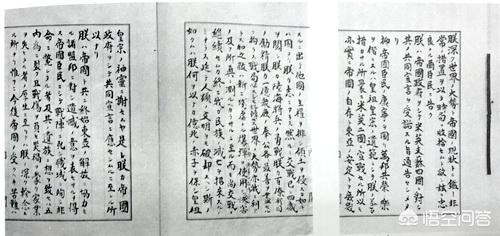 朕深ク世界ノ大勢ト帝國ノ現状トニ鑑ミ非
常ノ措置ヲ以テ時局ヲ收拾セムト欲シ茲ニ忠
良ナル爾臣民ニ告ク
朕ハ帝國政府ヲシテ米英支蘇四國ニ對シ其
ノ共同宣言ヲ受諾スル旨通告セシメタリ
抑帝國臣民ノ康寧ヲ圖リ萬邦共榮ノ樂
ヲ偕ニスルハ皇祖皇宗ノ遺範ニシテ朕ノ拳々
措カサル所曩ニ米英二國ニ宣戰セル所以モ
亦實ニ帝國ノ自存ト東亞ノ安定トヲ庶幾
スルニ出テ他國ノ主權ヲ排シ領土ヲ侵スカ如キ
ハ固ヨリ朕カ志ニアラス然ルニ交戰已ニ四歳
ヲ閲シ朕カ陸海將兵ノ勇戰朕カ百僚有司ノ
勵精朕カ一億衆庶ノ奉公各々最善ヲ盡セ
ルニ拘ラス戰局
世界ノ大勢亦我ニ利
アラス加之敵ハ新ニ殘虐ナル爆彈ヲ使用シテ
及フ所眞ニ測ルヘカラサルニ至ル而モ尚交戰ヲ
繼續セムカ終ニ我カ民族ノ滅亡ヲ招來スルノミ
ナラス延テ人類ノ文明ヲモ破却スヘシ斯ノ
如クムハ朕何ヲ以テカ億兆ノ赤子ヲ保シ皇祖
皇宗ノ神靈ニ謝セムヤ是レ朕カ帝國
政府ヲシテ共同宣言ニ應セシムルニ至レル所
以ナリ
朕ハ帝國ト共ニ終始東亞ノ解放ニ協力セ
ル諸盟邦ニ對シ遺憾ノ意ヲ表セサルヲ得
ス帝國臣民ニシテ戰陣ニ死シ職域ニ殉シ非
命ニ斃レタル者及其ノ遺族ニ想ヲ致セハ五
内爲ニ裂ク且戰傷ヲ負ヒ災禍ヲ蒙リ家業
ヲ失ヒタル者ノ厚生ニ至リテハ朕ノ深ク軫念ス
ル所ナリ惟フニ今後帝國ノ受クヘキ苦難
悟空问答